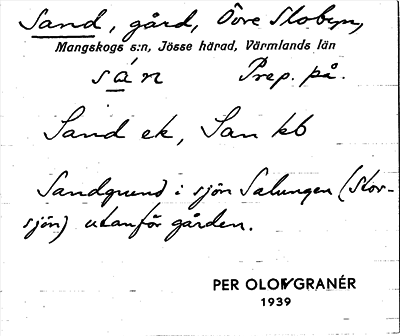 Sand, gård, Övre Slobyn,
Mangskogs s:n, Jösse härad, Värmlands län
sán Prep. på.
Sand ek, San kb
Sandgrund i sjön Salungen (Stor-
sjön) utanför gården.
PER OLOV GRANÉR
1939